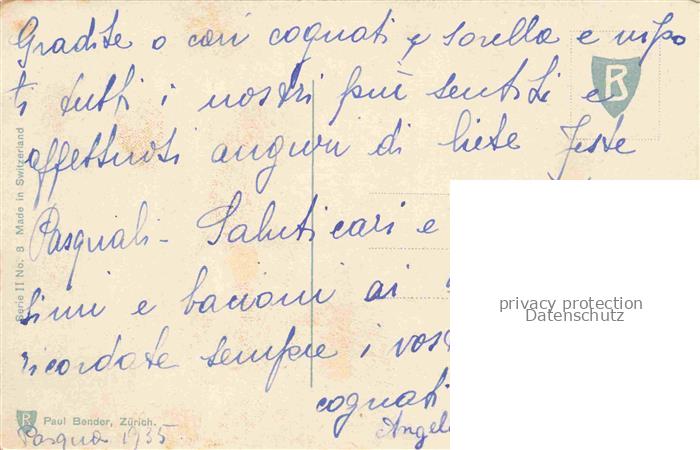 Gradite o cari cognati e sorella e nipo
ti tutti i nostri più sentiti e
affettuosi auguri di liete feste
Pasquali - Saluti cari e
simi e bacioni ai
ricordate sempre i vos
cognati
Angel
Pasqua 1935.
Serie II No. 8 Made in Switzerland
R
Paul Bender, Zürich.
B
privacy protection
Datenschutz